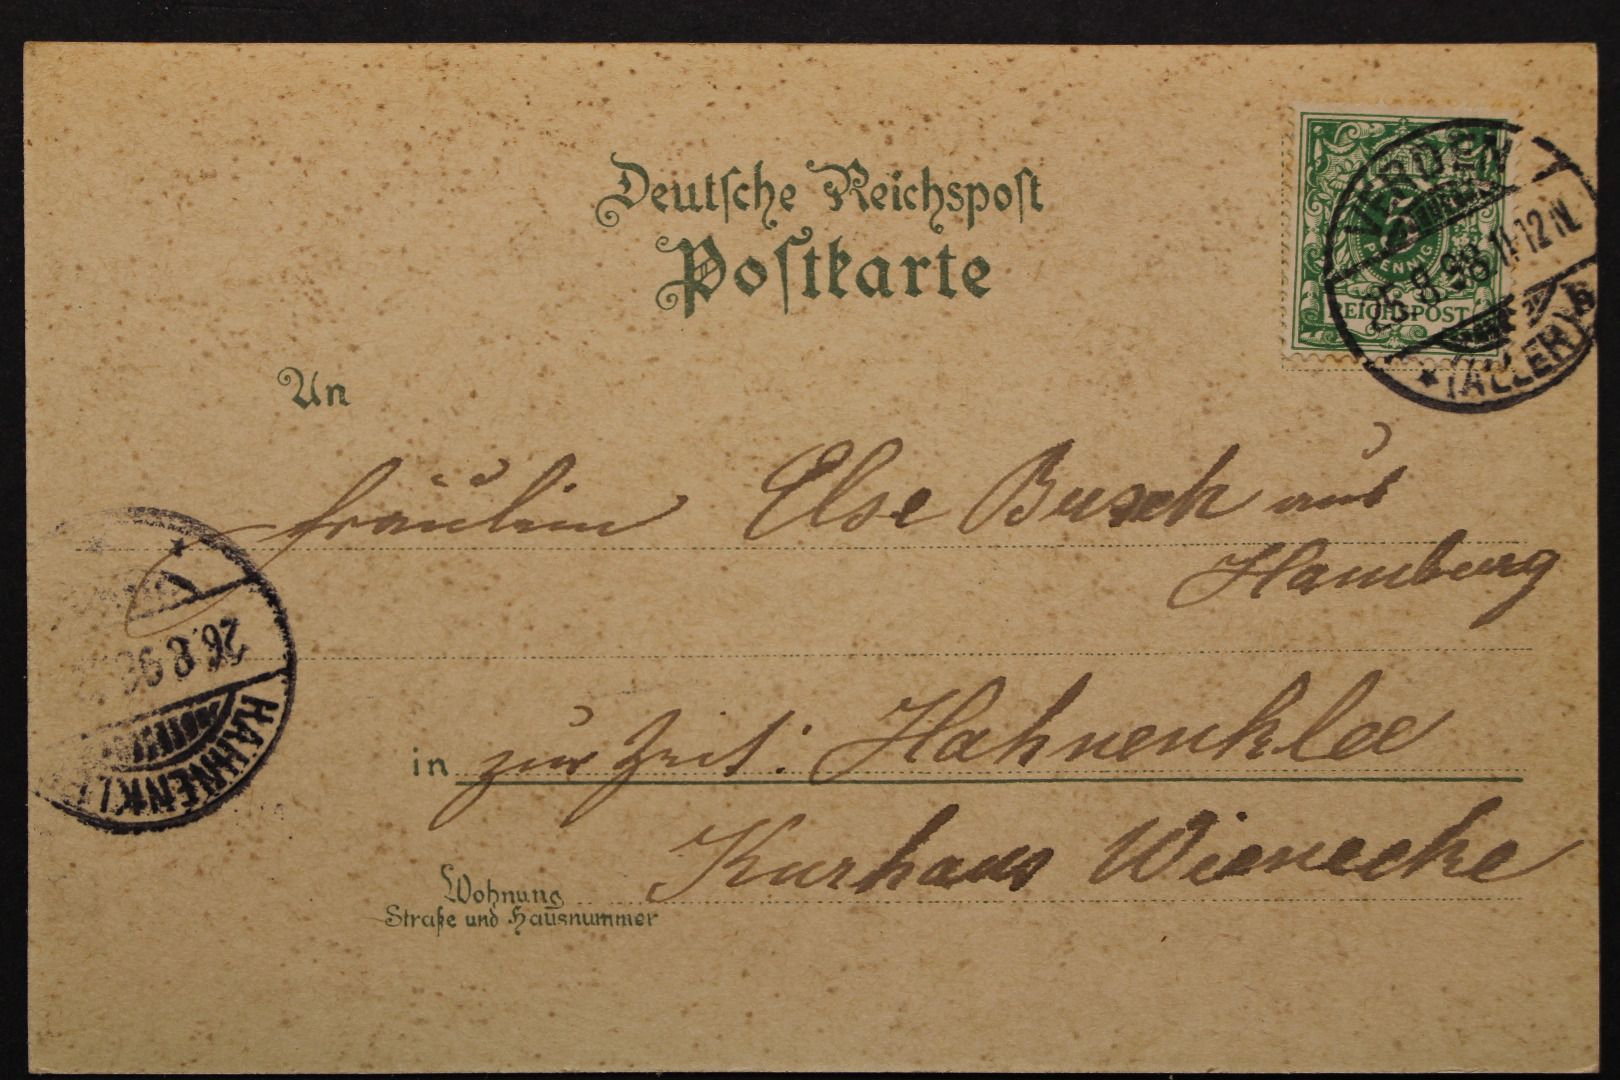 Deutsche Reichspost
Postkarte
VERDEN
5
PFENNIG
REICHSPOST
25.8.98.11-12N.
* (ALLER) b
An
Fräulein Else Busch aus
Hamburg
26.8.98
HAHNENKL
in zur Zeit: Hahnenklee
Kurhaus Wienecke
Wohnung
Straße und Hausnummer